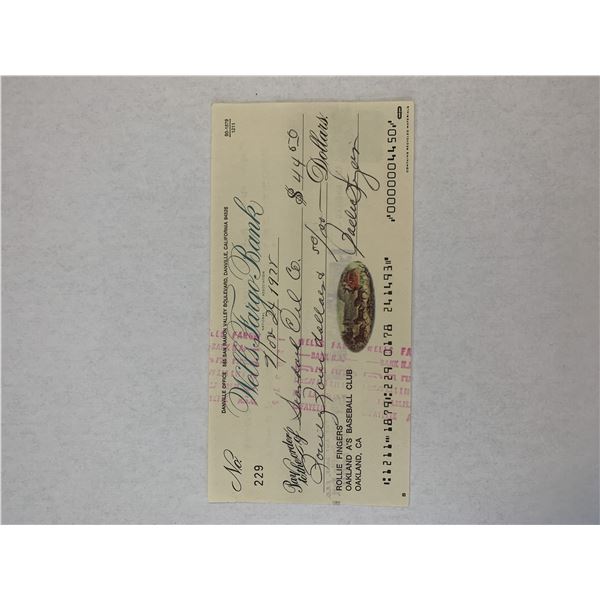 90-1879
1211
DANVILLE OFFICE, 185 SAN RAMON VALLEY BOULEVARD, DANVILLE, CALIFORNIA 94526
Wells Fargo Bank
No. 229
Nov 24 1975
Pay to the order of Standard Oil Co. $ 44 50
Fourty four dollars & 50/00 Dollars
ROLLIE FINGERS
OAKLAND A'S BASEBALL CLUB
OAKLAND, CA
Rollie Fingers
⑆1211⑉1879⑆229 0178 241493⑈ ⑇0000004450⑇
CONTAINS RECYCLED MATERIALS
WELLS FARGO